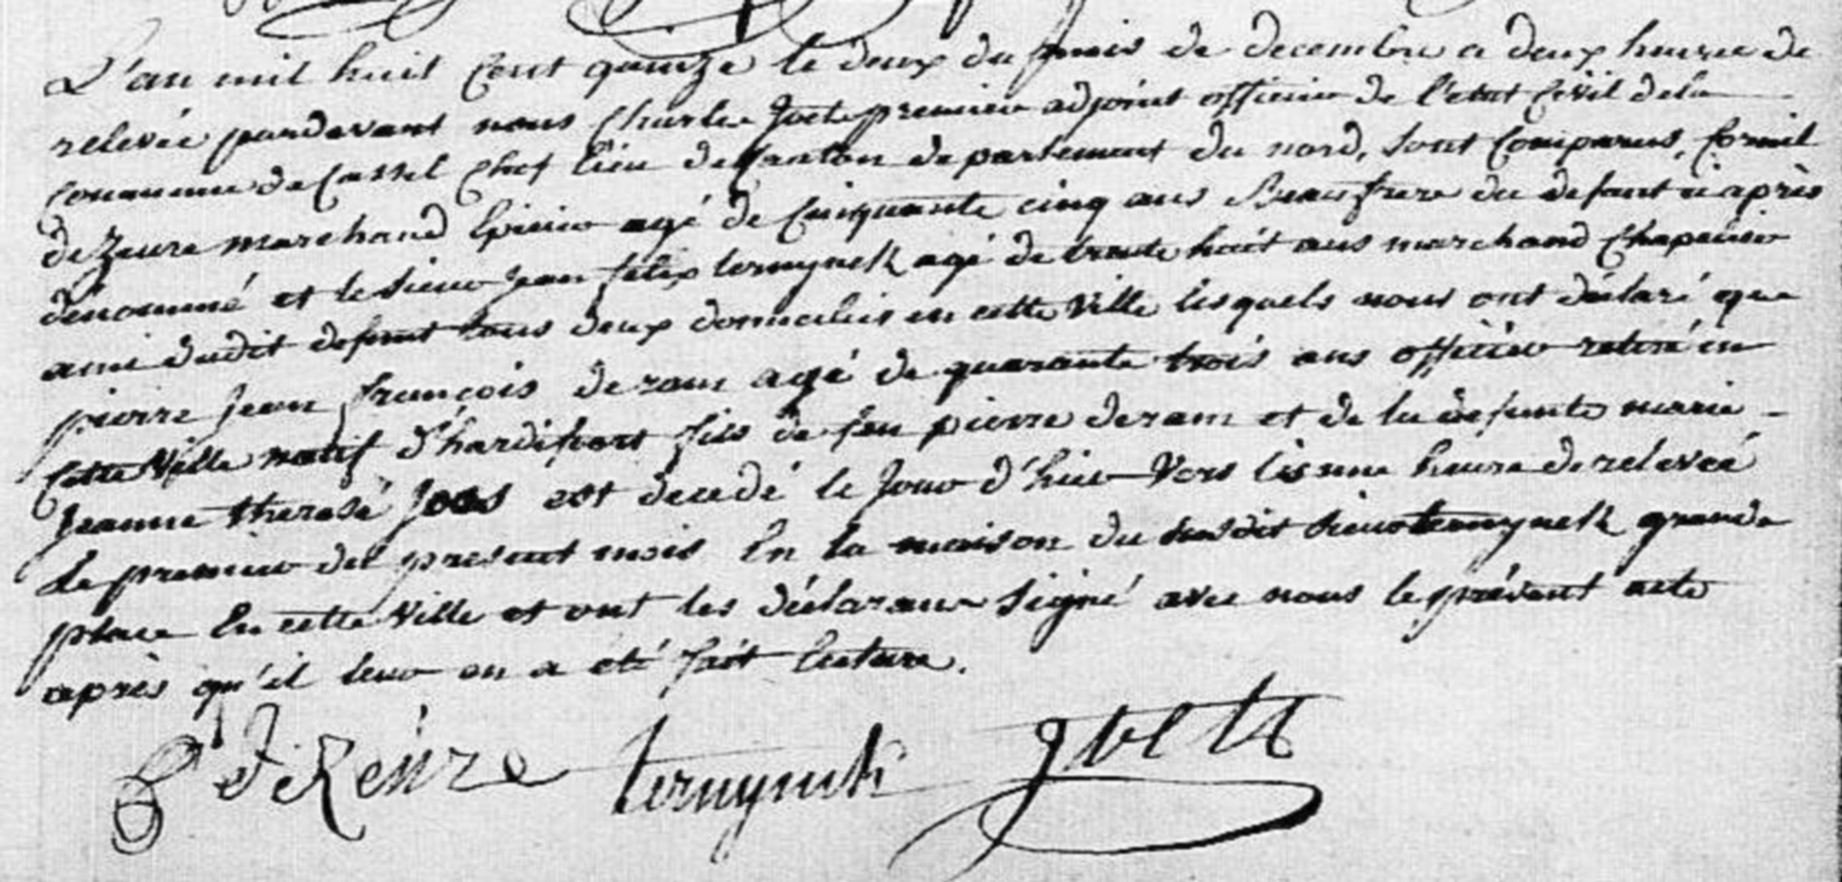 L'an mil huit Cent quinze le deux du mois de decembre a deux heures de
relevée pardevant nous Charles Joets premier adjoint officier de l'etat Civil dela
Commune de Cassel Chef lieu de Canton departement du nord, sont Comparus, Cornil
deZeure marchand Epicier agé de Cinquante cinq ans Beaufrere du defunt ci après
dénommé et le Sieur jean felix ternynck agé de trente huit ans marchand Chapelier
ami dudit defunt tous deux domiciliés en cette Ville lesquels nous ont déclaré que
pierre Jean françois deram agé de quarante trois ans officier retiré en
Cette Ville natif d'hardifort fils de feu pierre deram et de la defunte marie
Jeanne therese Joos est decedé le Jour d'hier Vers les une heure de relevée
Le premier del present mois En la maison du susdit Sieur ternynck grande
place En cette Ville et ont les déclarans Signé avec nous le présent acte
après qu'il leur en a été fait lecture.
C deZeure ternynck Joets